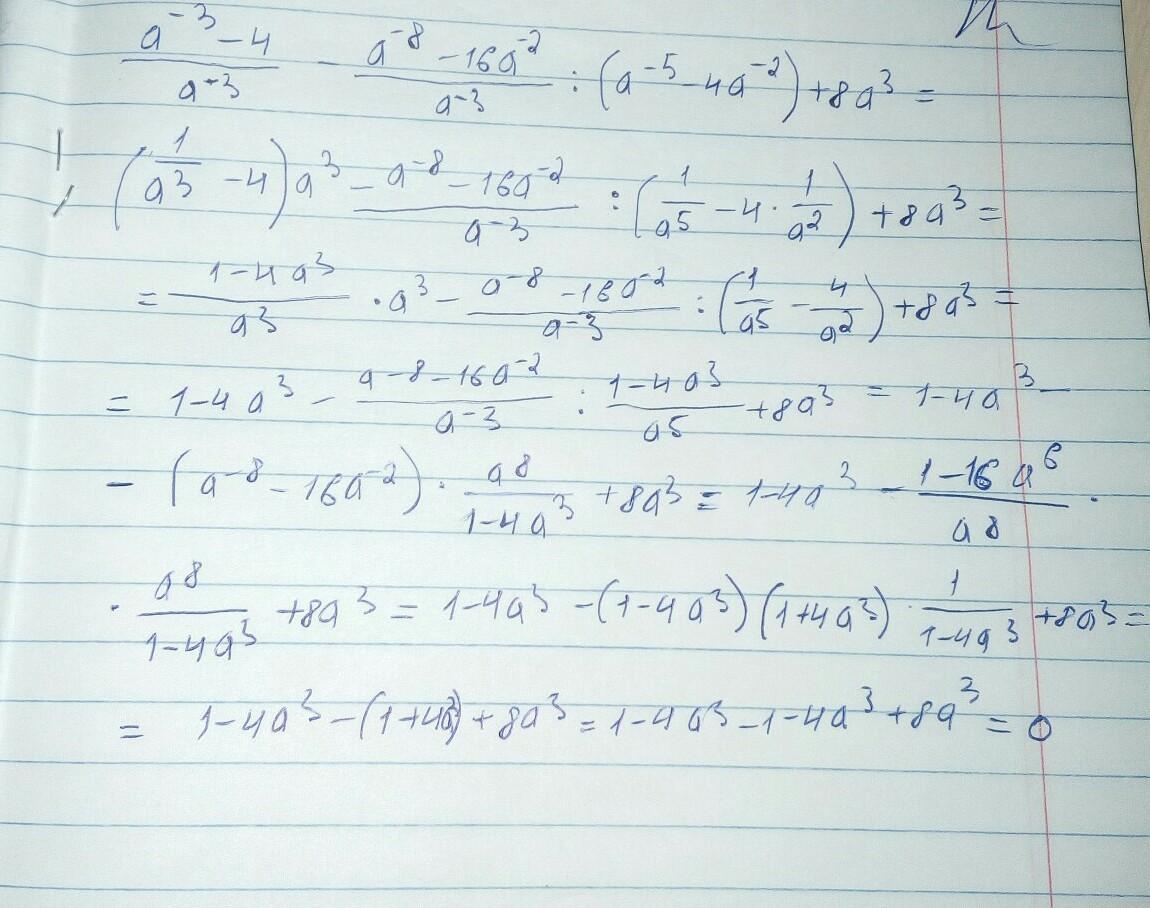 \frac{a^{-3}-4}{a^{-3}} - \frac{a^{-8}-16a^{-2}}{a^{-3}} : (a^{-5}-4a^{-2})+8a^3=
(\frac{1}{a^3}-4)a^3-\frac{a^{-8}-16a^{-2}}{a^{-3}} : (\frac{1}{a^5}-4\cdot\frac{1}{a^2})+8a^3=
=\frac{1-4a^3}{a^3}\cdot a^3-\frac{a^{-8}-16a^{-2}}{a^{-3}} : (\frac{1}{a^5}-\frac{4}{a^2})+8a^3=
= 1-4a^3-\frac{a^{-8}-16a^{-2}}{a^{-3}} : \frac{1-4a^3}{a^5}+8a^3 = 1-4a^3-
-(a^{-8}-16a^{-2})\cdot\frac{a^8}{1-4a^3}+8a^3=1-4a^3-\frac{1-16a^6}{a^8}\cdot
\cdot\frac{a^8}{1-4a^3}+8a^3=1-4a^3-(1-4a^3)(1+4a^3)\cdot\frac{1}{1-4a^3}+8a^3=
= 1-4a^3-(1+4a^3)+8a^3=1-4a^3-1-4a^3+8a^3=0